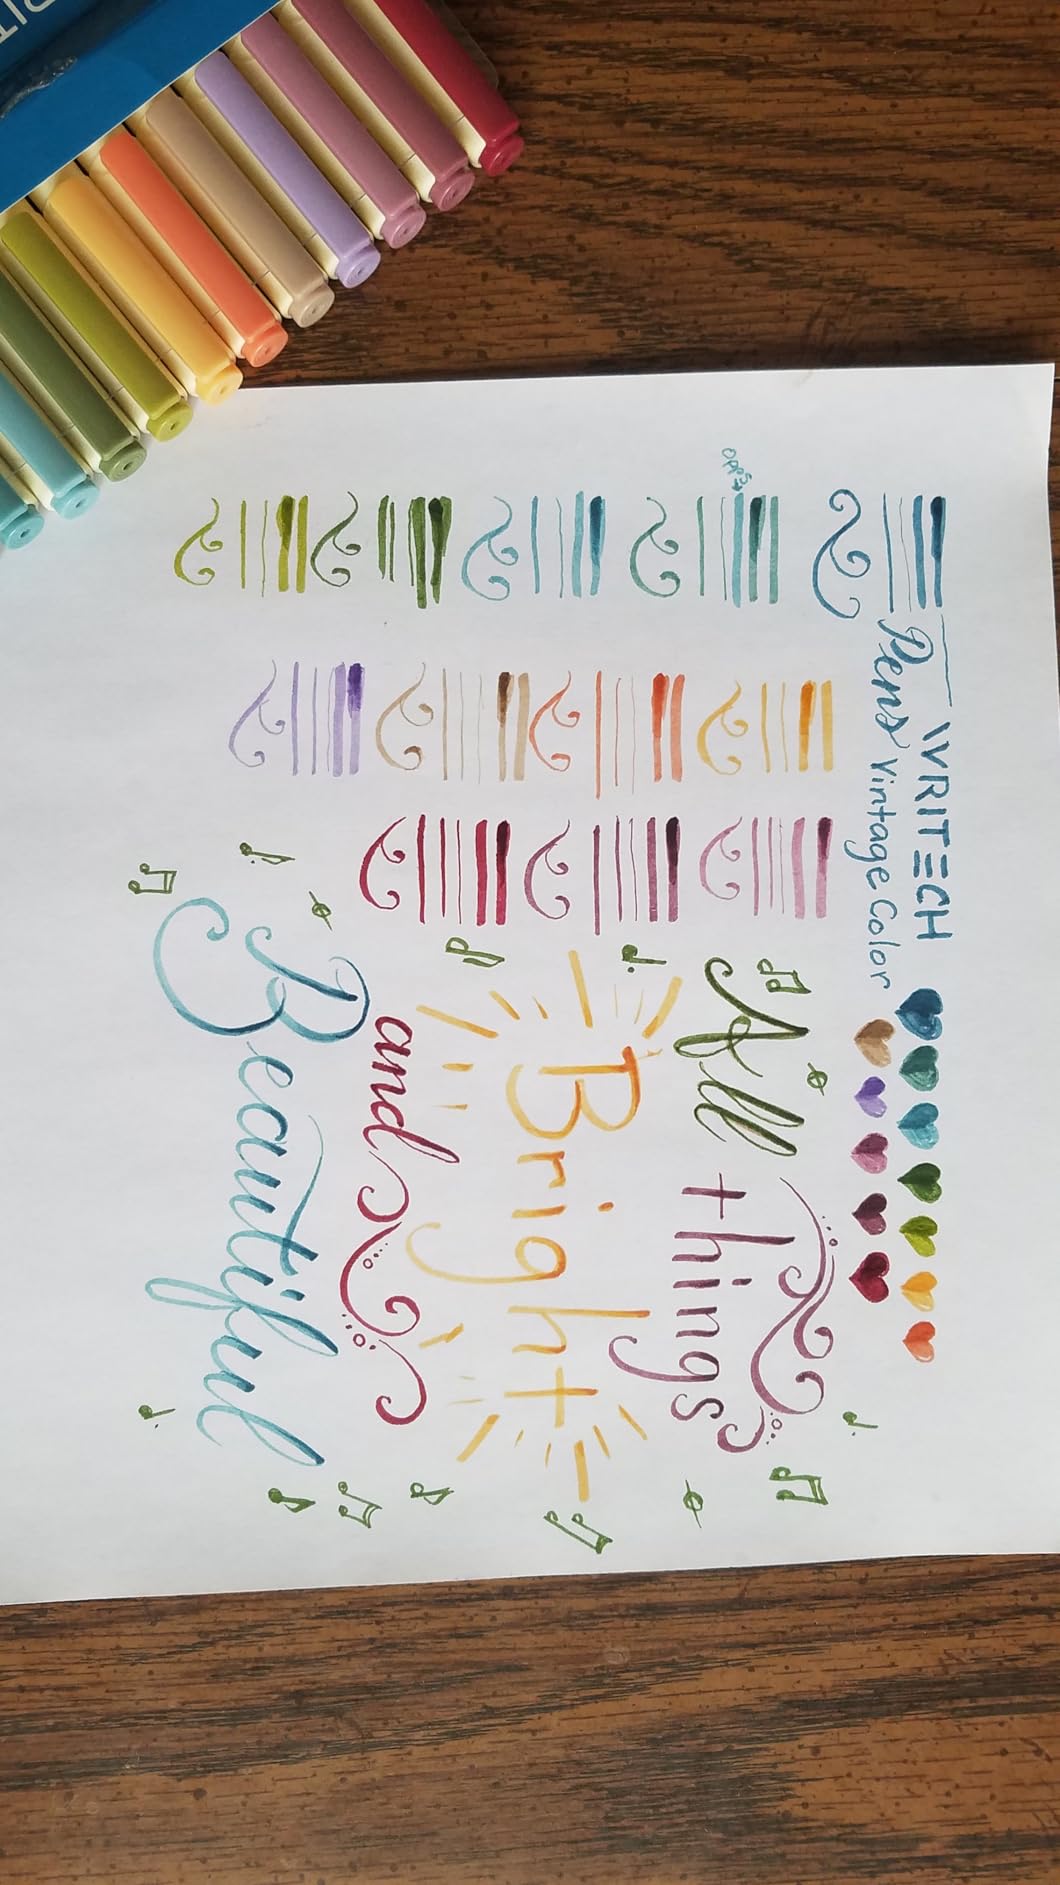 WRITECH
Pens Vintage Color
OOPS
All things
Bright
and
Beautiful